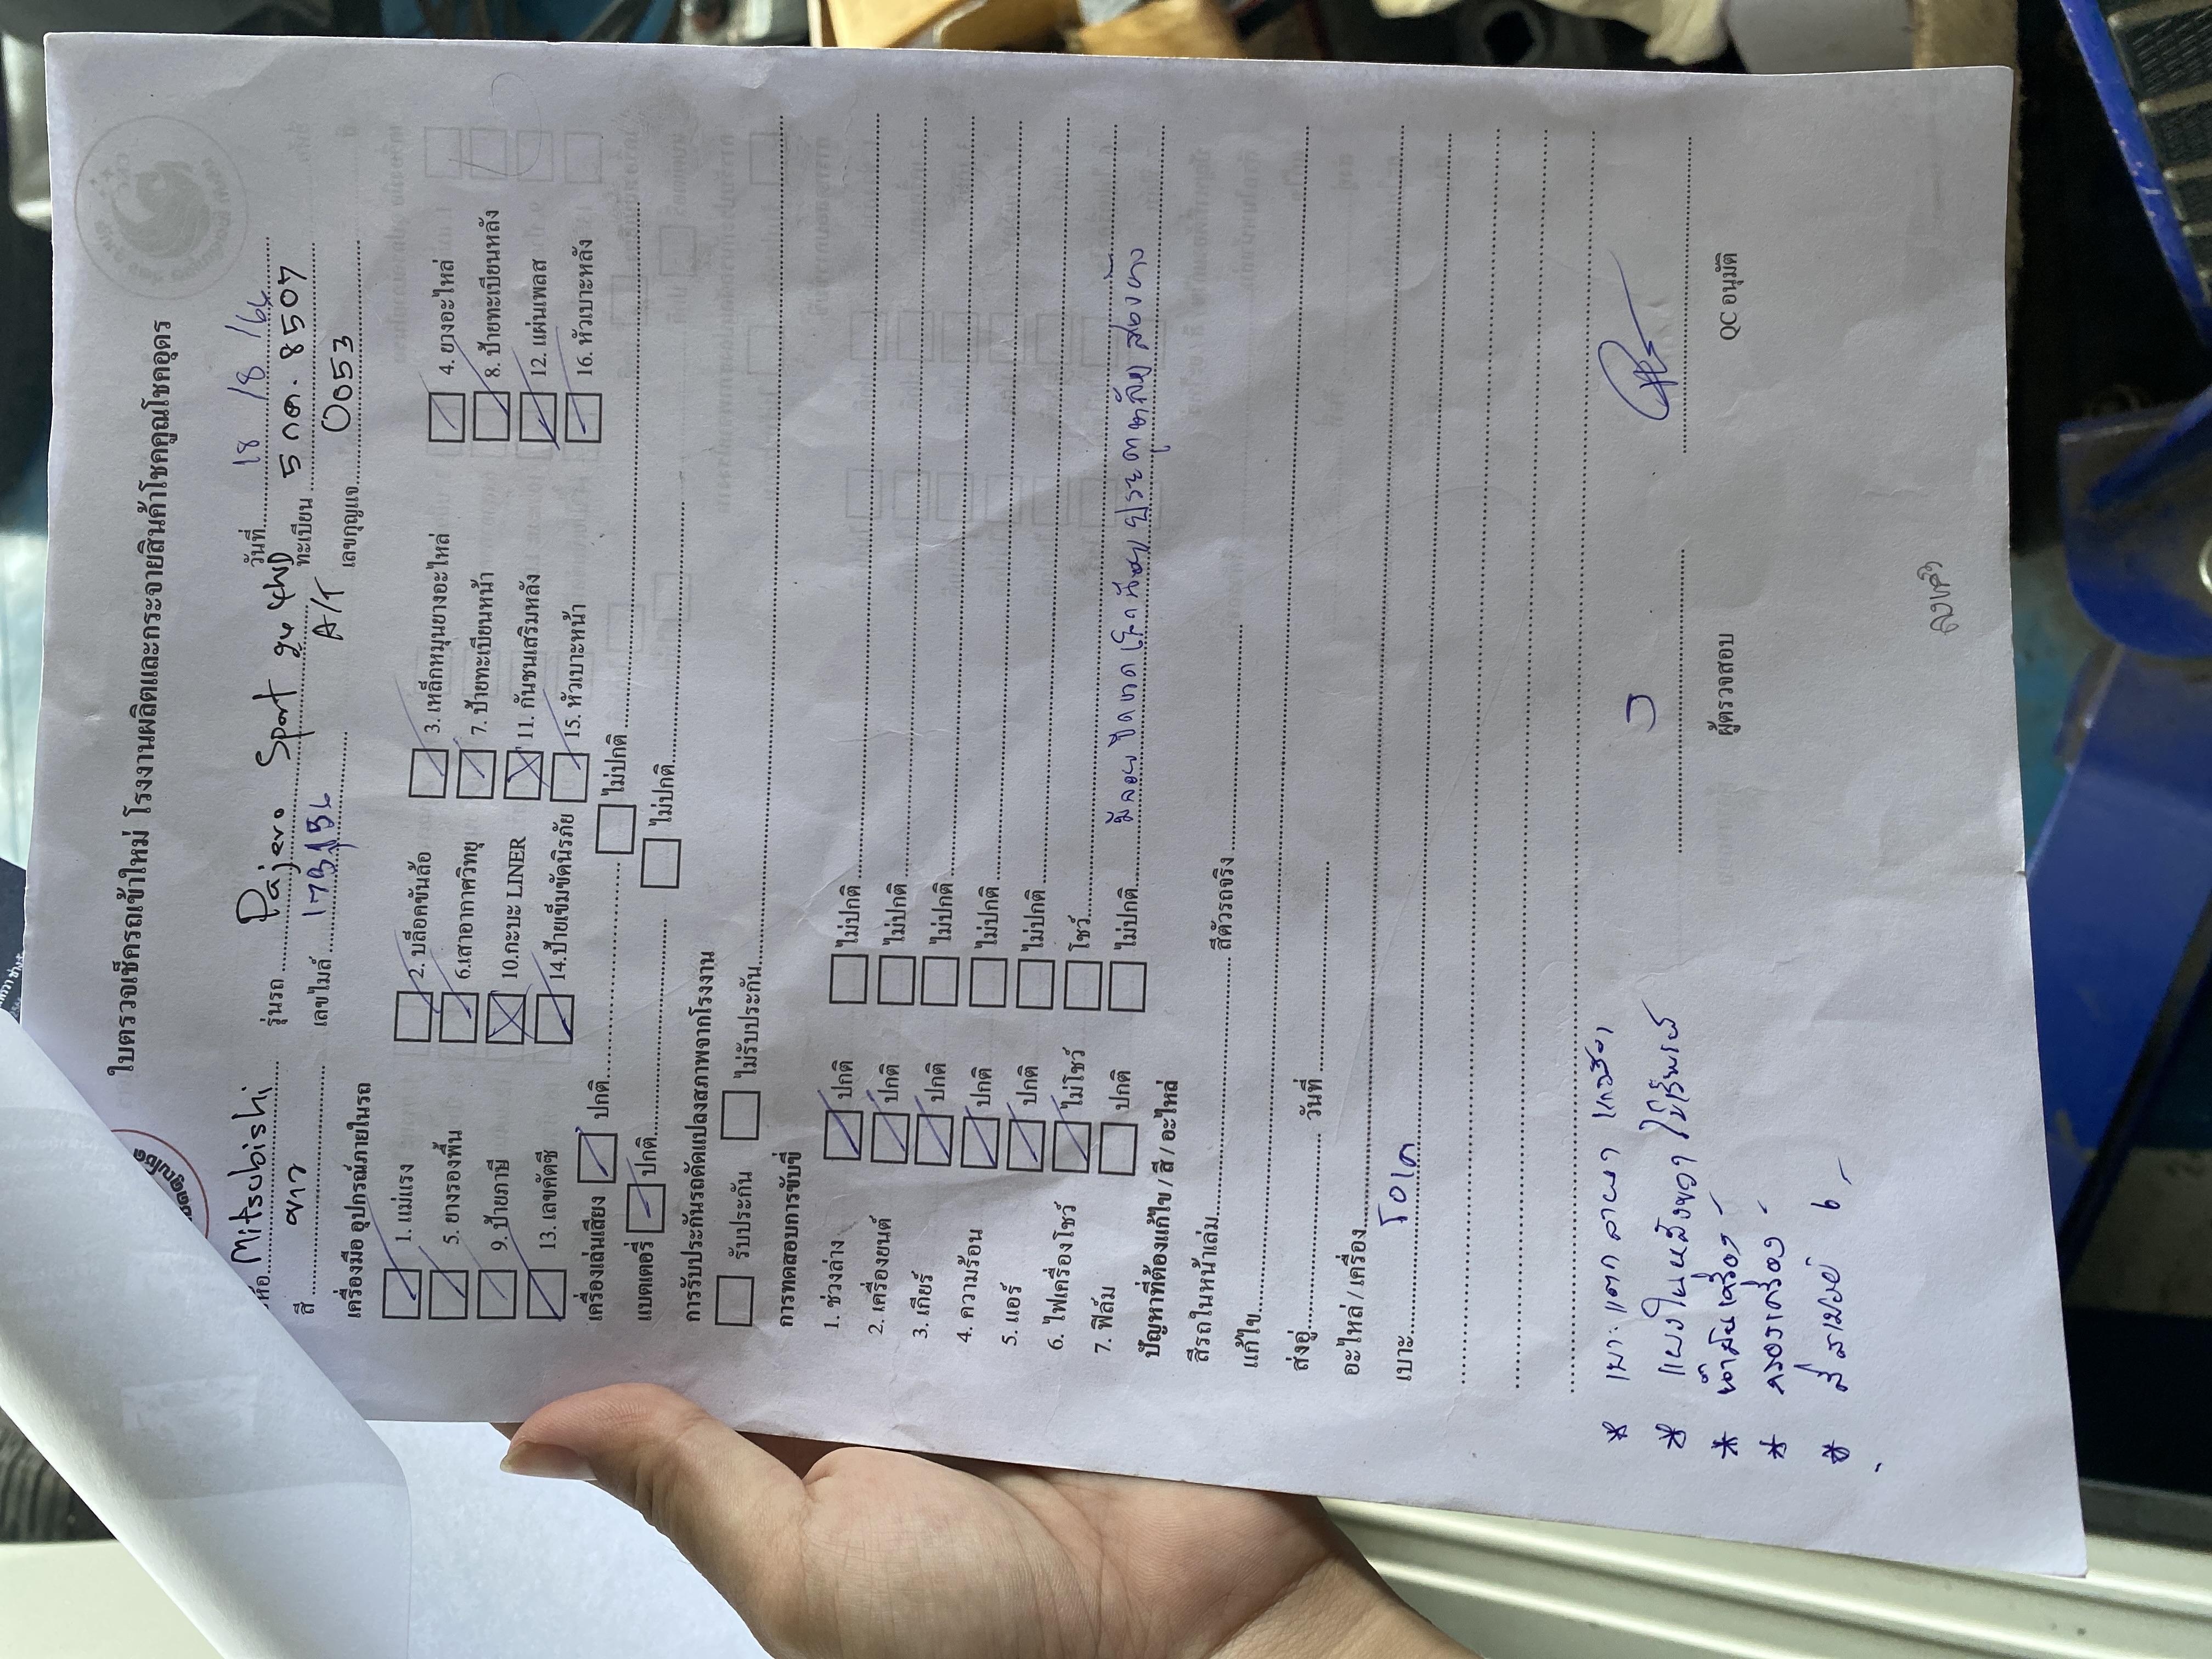 ใบตรวจเช็ครถเข้าใหม่ โรงงานผลิตและกระจายสินค้าโชคคูณโชคอุดร
Mitsubishi รุ่นรถ Pajero Sport 4WD วันที่ 18 /8 /66
สี ขาว เลขไมล์ A/T ทะเบียน 5 กค. 8507
เลขกุญแจ 0053
เครื่องมือ อุปกรณ์ภายในรถ
1. แม่แรง 2. บล็อคขันล้อ 3. เหล็กหมุนยางอะไหล่ 4. ยางอะไหล่
5. ยางรองพื้น 6.เสาอากาศวิทยุ 7. ป้ายทะเบียนหน้า 8. ป้ายทะเบียนหลัง
9. ป้ายภาษี 10.กะบะ LINER 11. กันชนเสริมหลัง 12. แผ่นเพลส
13. เลขคัดซี 14.ป้ายเข็มขัดนิรภัย 15. หัวเบาะหน้า 16. หัวเบาะหลัง
เครื่องเล่นเสียง ปกติ ไม่ปกติ
แบตเตอรี่ ปกติ ไม่ปกติ
การรับประกันรถดัดแปลงสภาพจากโรงงาน
รับประกัน ไม่รับประกัน
การทดสอบการขับขี่
1. ช่วงล่าง ปกติ ไม่ปกติ
2. เครื่องยนต์ ปกติ ไม่ปกติ
3. เกียร์ ปกติ ไม่ปกติ
4. ความร้อน ปกติ ไม่ปกติ
5. แอร์ ปกติ ไม่ปกติ
6. ไฟเครื่องโชว์ ไม่โชว์ โชว์
7. ฟิล์ม ปกติ ไม่ปกติ
ปัญหาที่ต้องแก้ไข / สี / อะไหล่
สีรถในหน้าเล่ม สีตัวรถจริง
แก้ไข
ส่งอู่ วันที่
อะไหล่ / เครื่อง
เบาะ
* เบาะแตก
* แผงในหลังขวา
* น้ำมันเครื่อง
* กรองเครื่อง
*
ผู้ตรวจสอบ QC อนุมัติ